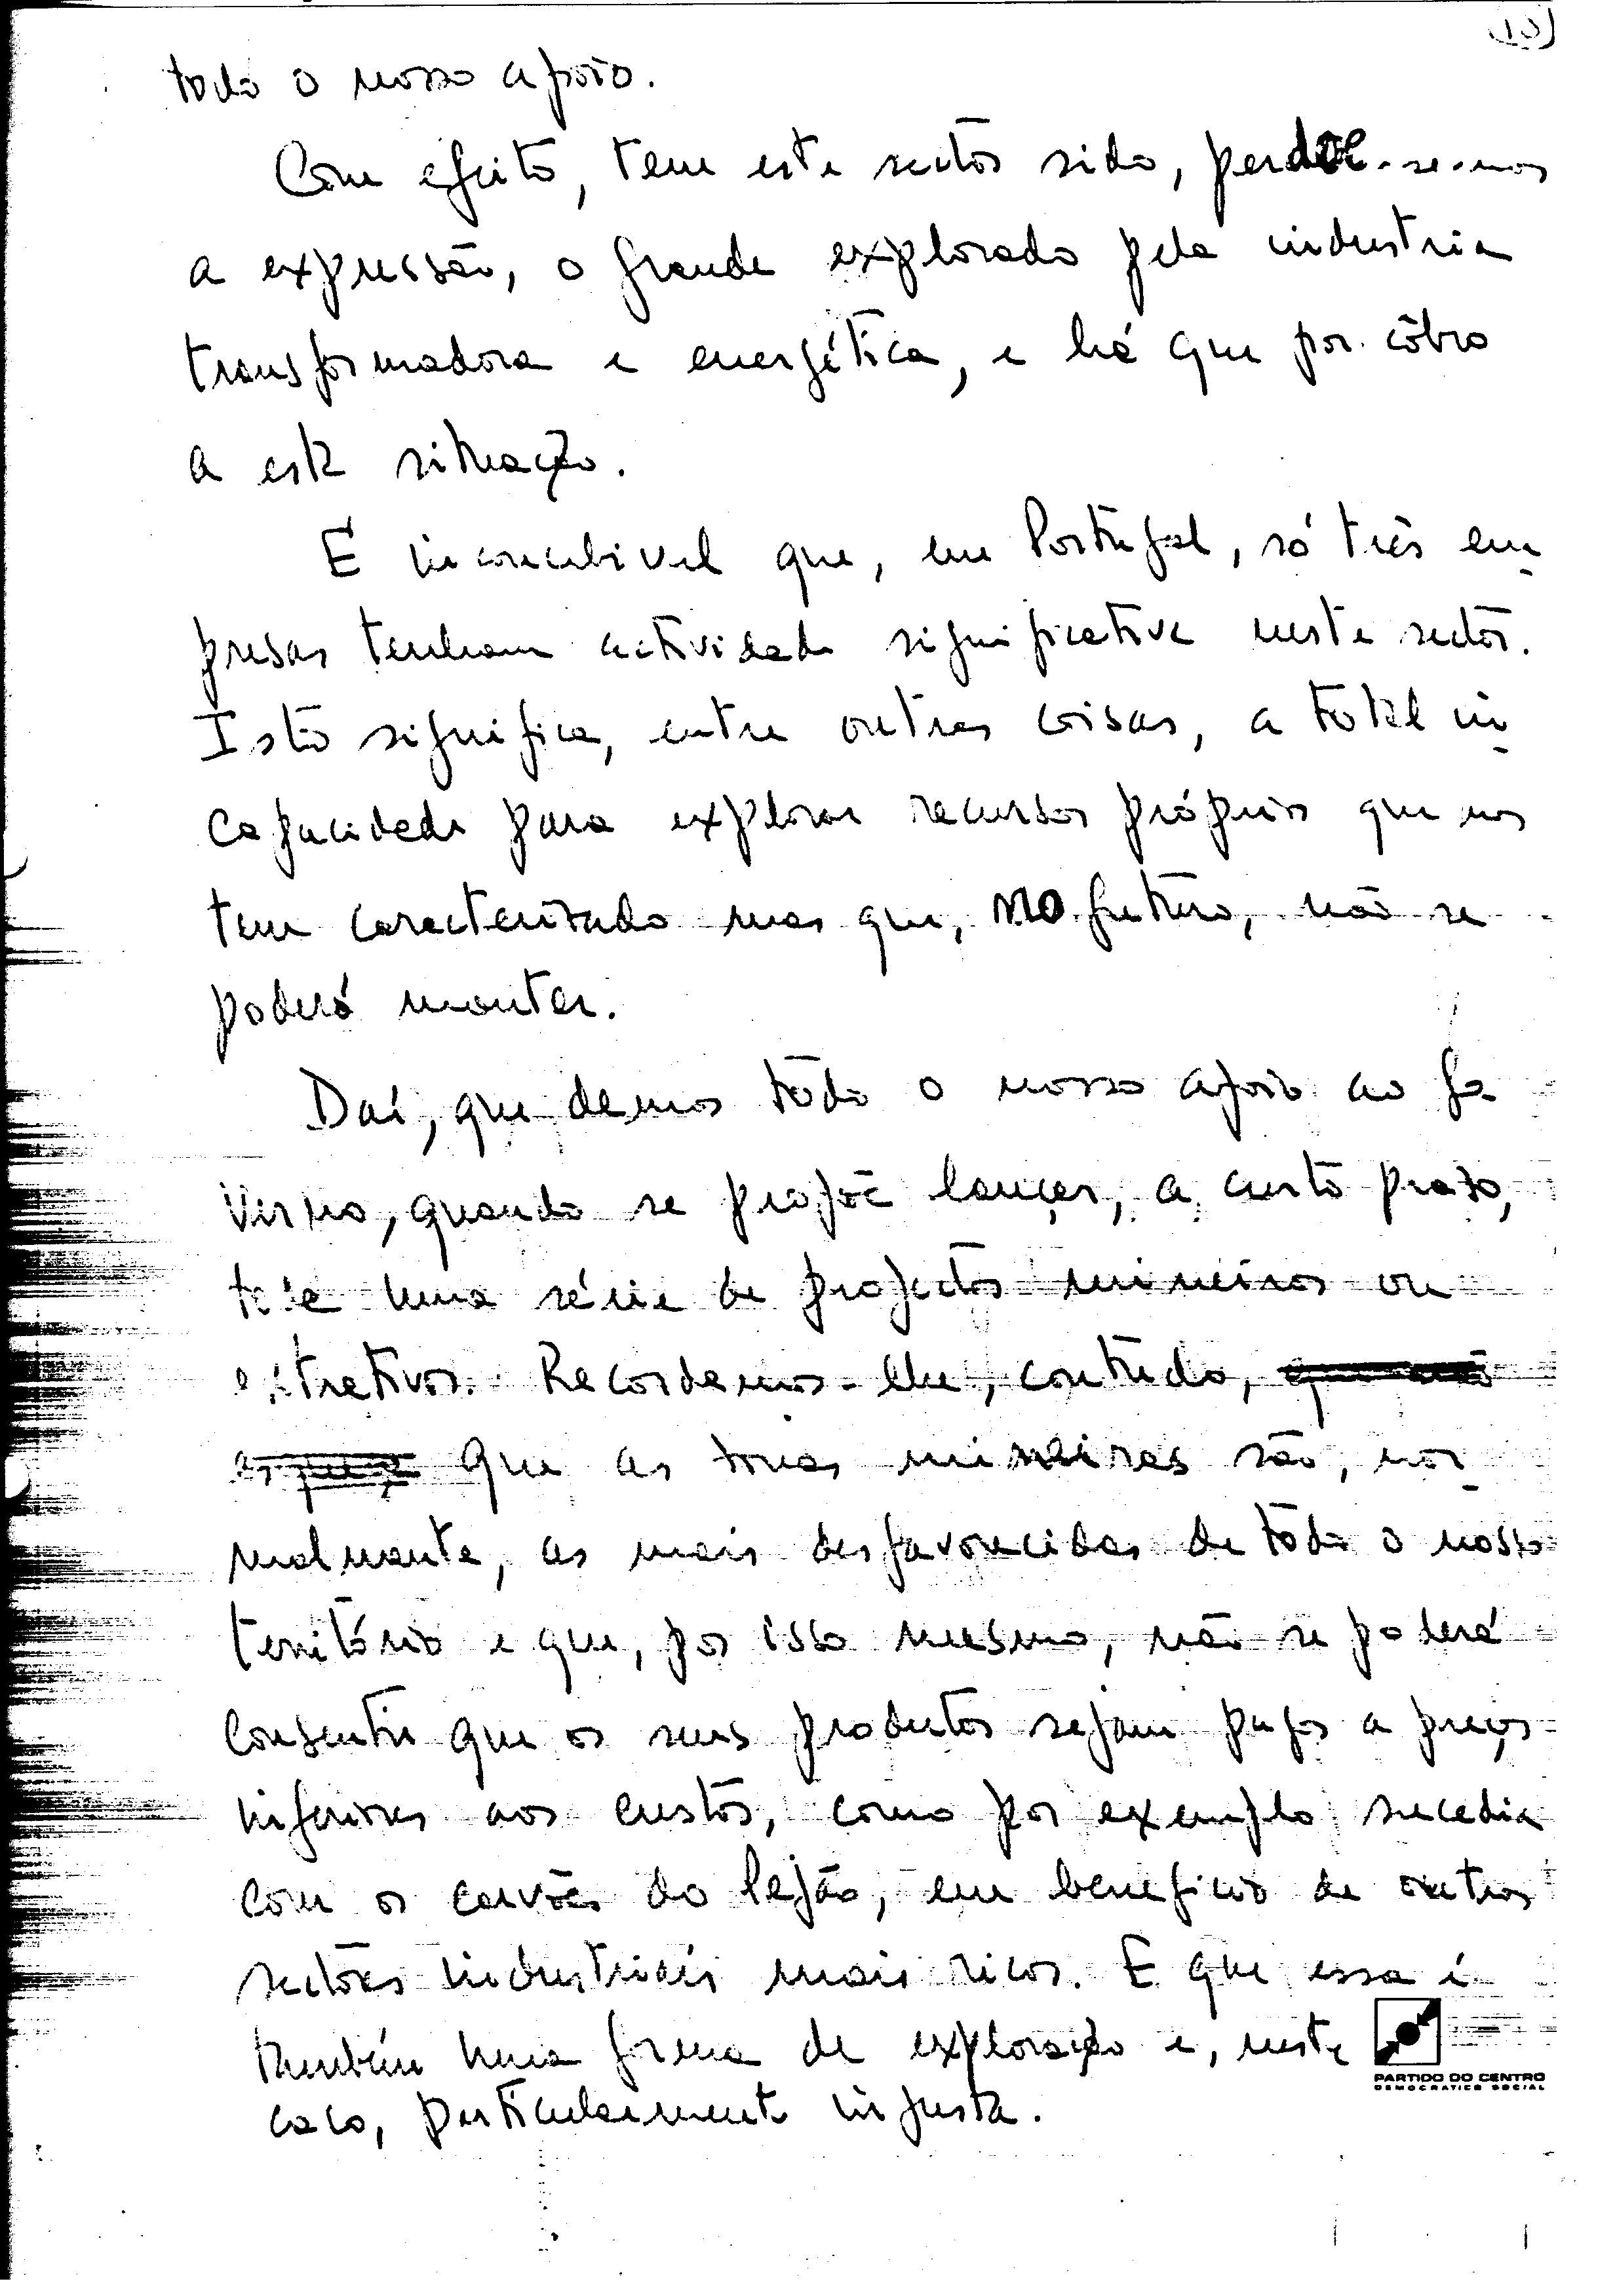 10)
todo o nosso apoio.
Com efeito, tem este sector sido, perdoe-se-nos
a expressão, o grande explorado pela industria
transformadora e energética, e há que por côbro
a esta situação.
É inconcebivel que, em Portugal, só três em
presas tenham actividade significativa neste sector.
Isto significa, entre outras coisas, a total in
capacidade para explorar recursos próprios que nos
tem caracterizado mas que, no futuro, não se
poderá manter.
Daí, que demos todo o nosso apoio ao Go
verno, quando se propõe lançar, a curto prazo,
toda uma série de projectos mineiros ou
extrativos. Recordemos-lhe, contudo, que não
esqueça que as zonas mineiras são, nor
malmente, as mais desfavorecidas de todo o nosso
território e que, por isso mesmo, não se poderá
consentir que os seus produtos sejam pagos a preços
inferiores aos custos, como por exemplo sucedia
com os carvões do Pejão, em beneficio de outros
sectores industriais mais ricos. E que essa é
também uma forma de exploração e, neste
caso, particularmente injusta.
PARTIDO DO CENTRO
DEMOCRATICO SOCIAL